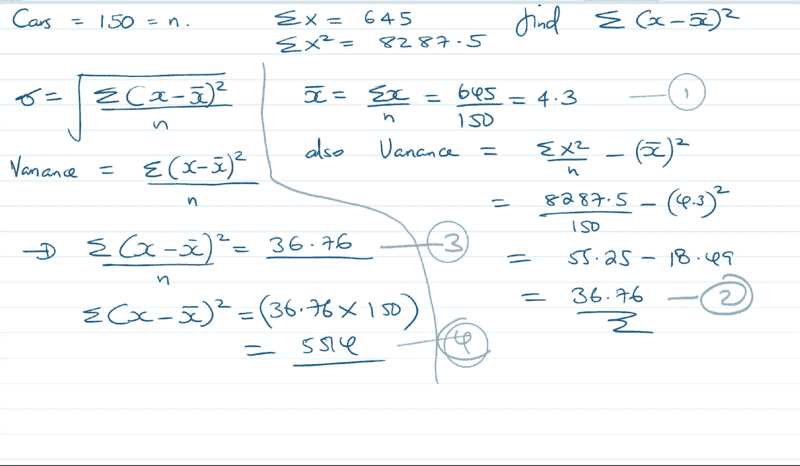 Cars = 150 = n. Σx = 645 find Σ(x-x̄)²
Σx² = 8287.5
σ = √(Σ(x-x̄)²/n)
Variance = Σ(x-x̄)²/n
→ Σ(x-x̄)²/n = 36.76 — 3
Σ(x-x̄)² = (36.76 × 150)
= 5514 — 4
x̄ = Σx/n = 645/150 = 4.3 — 1
also Variance = Σx²/n - (x̄)²
= 8287.5/150 - (4.3)²
= 55.25 - 18.49
= 36.76 — 2